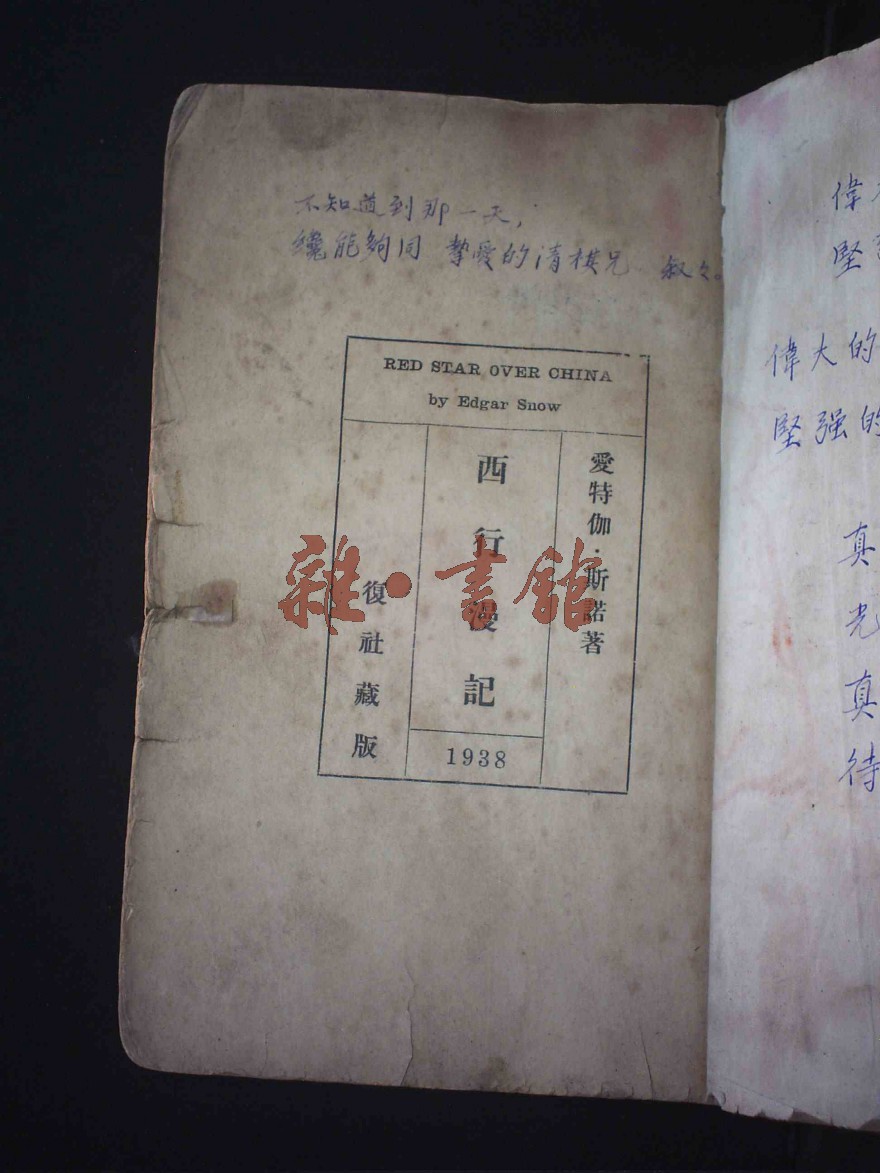 不知道到那一天，
纔能夠同 摯愛的清棪兄 叙々。
RED STAR OVER CHINA
by Edgar Snow
愛特伽·斯諾著
西行漫記
1938
復社藏版
雜·書館
偉
堅
偉大的
堅强的
真
光
真
待